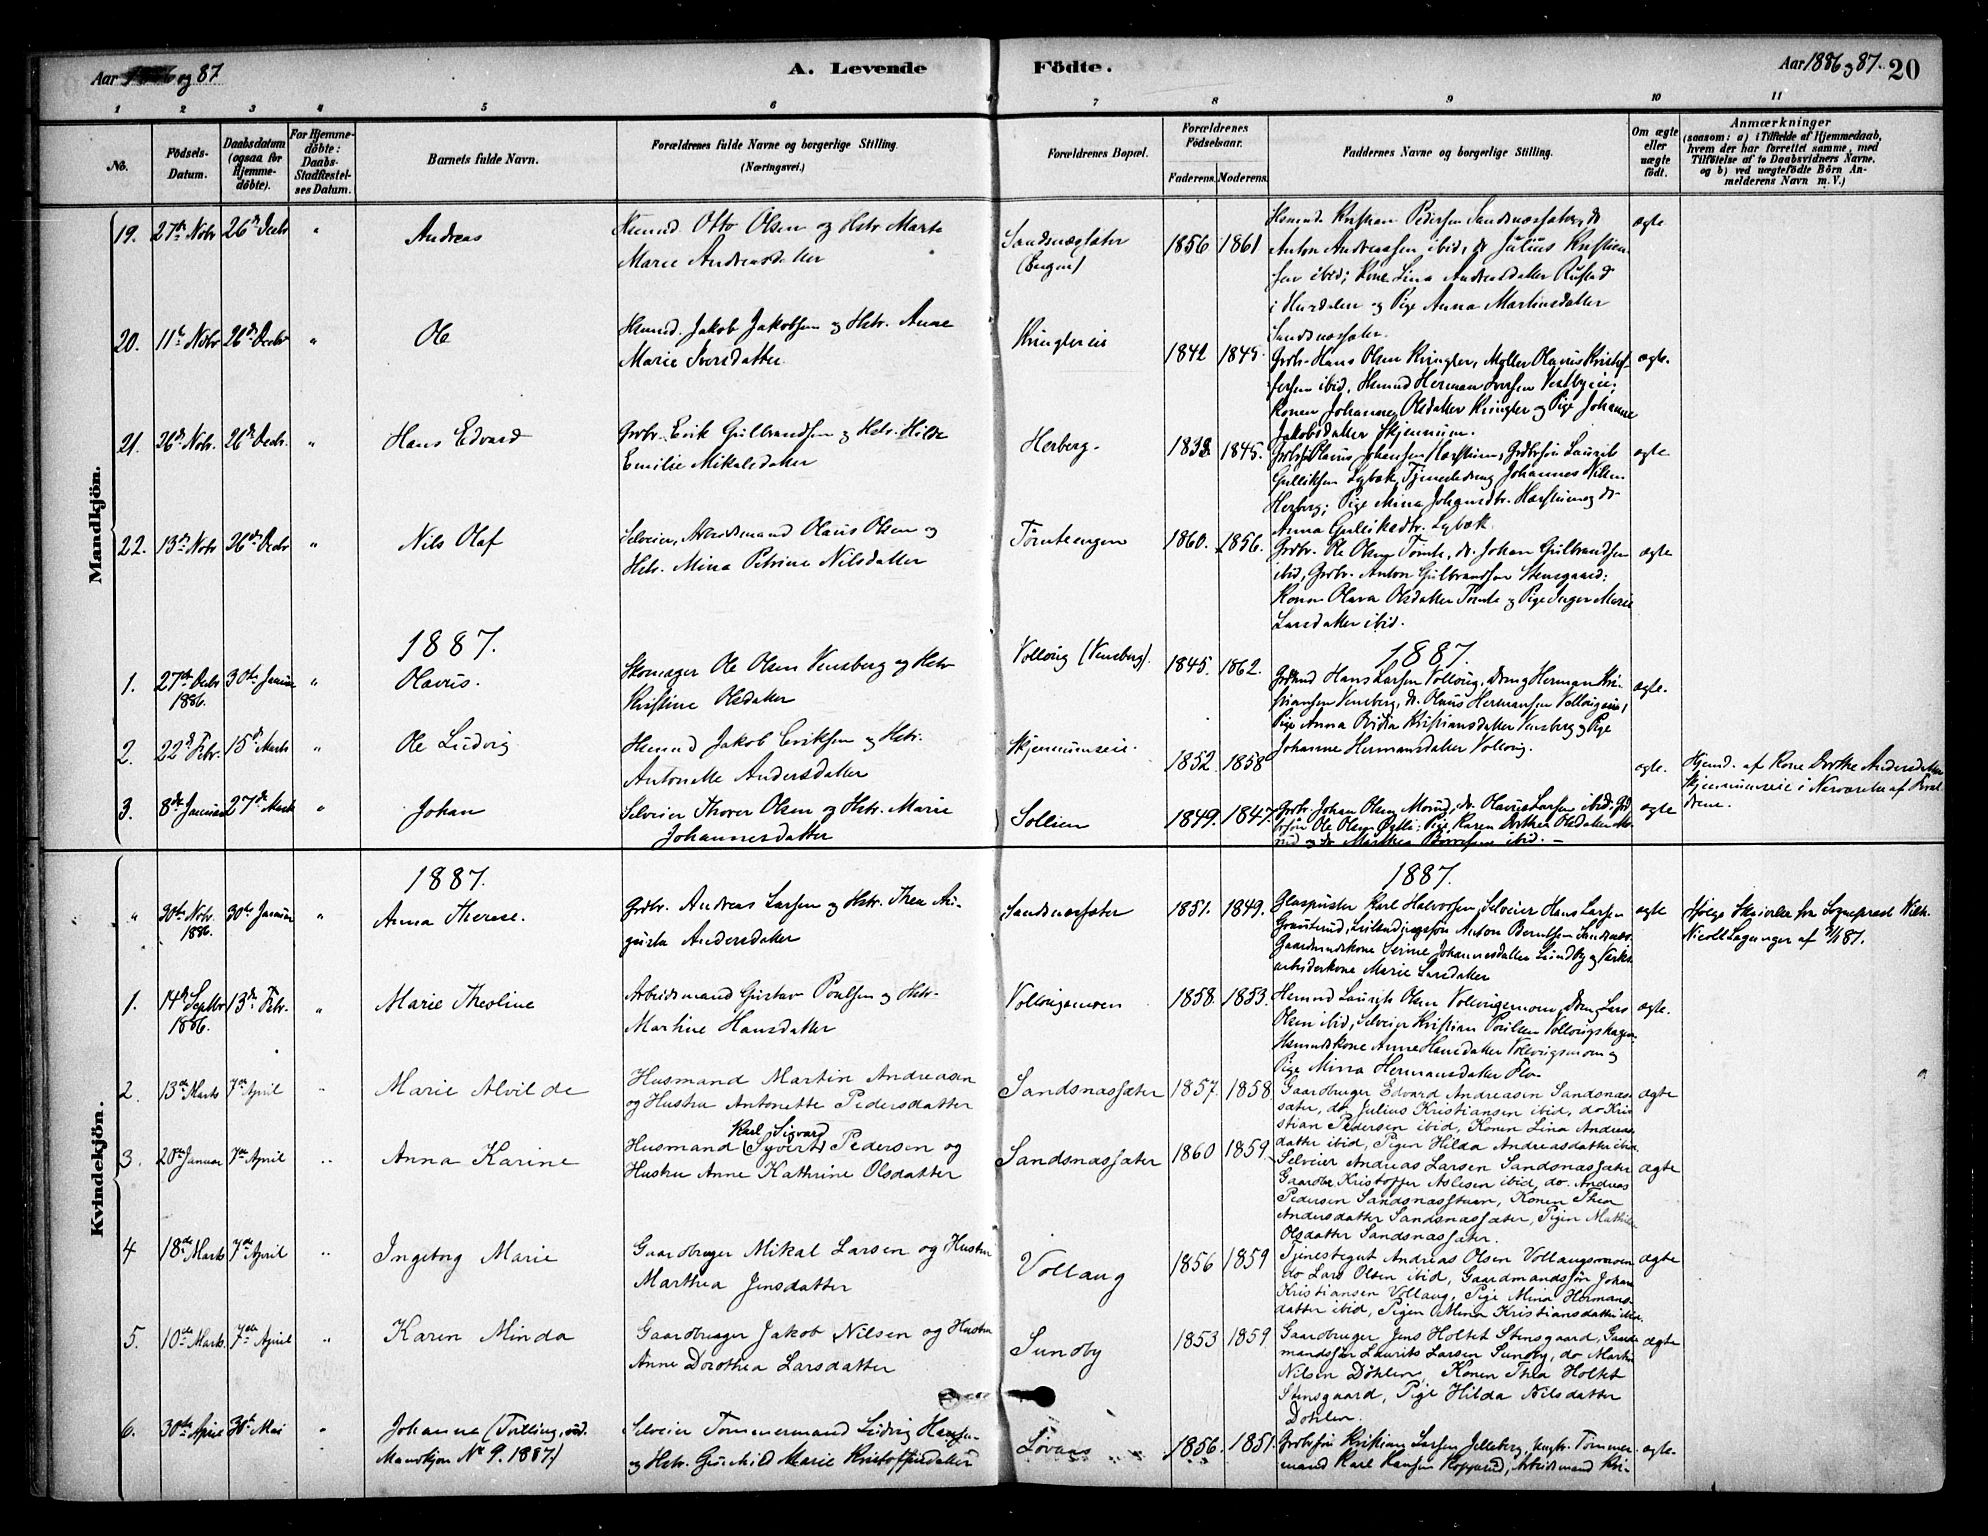 Aar 1886 og 87
A. Levende Födte.
Aar 1886 og 87. 20
1 2 3 4 5 6 7 8 9 10 11
No.
Födsels-Datum.
Daabsdatum (ogsaa for Hjemmedöbte).
For Hjemmedöbte: Daabs-Stadfæstelses Datum.
Barnets fulde Navn.
Forældrenes fulde Navne og borgerlige Stilling. (Næringsvei.)
Forældrenes Bopæl.
Forældrenes Födselsaar.
Faderens. Moderens.
Faddernes Navne og borgerlige Stilling.
Om ægte eller uægte födt.
Anmærkninger
(saasom: a) i Tilfælde af Hjemmedaab, hvem der har forrettet samme, med Tilföielse af to Daabsvidners Navne, og b) ved uægtefödte Börn Anmelderens Navn m. V.)
Mandkjön.
19. 27de Nobr 26de Decbr " Andreas
Husmd Otto Olsen og Hstr. Marte
Marie Andreasdatter
Sandsnæssæter
(Engen)
1856 1861
Husmd. Kristian Pedersen Sandsnæssæter, do
Anton Andreassen ibid, do Julius Kristian-
sen ibid; Kone Lina Andreasdatter Rustad
i Hurdalen og Pige Anna Martinsdatter
Sandsnæssæter.
ægte
20. 11te Nobr 26de Decbr " Ole
Husmd. Jakob Jakobsen og Hstr. Anne
Marie Iversdatter
Kringlereie
1842 1845.
Grdbr. Hans Olsen Kringler, Møller Olavus Kristof-
fersen ibid, Husmd Herman Iversen Vestbyeie,
Konen Johanne Olsdatter Kringler og Pige Johanne
Jakobsdatter Skjennum.
ægte.
21. 26de Nobr. 26de Decbr. " Hans Edvard
Grdbr. Erik Gulbrandsen og Hstr. Hilde
Emilie Mikalsdatter
Herberg.
1838 1845.
Olavus Johansen Harstun, Grdbrsøn Laurits
Gulliksen Lybæk, Tjenestedreng Johannes Nilsen
Herberg; Pige Mina Johansdtr. Harstun og do
Anna Gulliksdtr. Lybæk.
ægte
22. 13de Nobr 26de Decbr " Nils Olaf
Selveier, Arbeidsmand Olaus Olsen og
Hstr. Mina Petrine Nilsdatter
Tømteengen
1860. 1856.
Grdbr. Ole Olsen Tømte, do. Johan Gulbrandsen
ibid, Grdbr. Anton Gulbrandsen Stensgaard;
Konen Olava Olsdatter Tømte og Pige Inger Marie
Larsdatter ibid.
ægte
1887. 1887.
1. 27de Decbr 1886. 30te Januar " Olavus.
Skomager Ole Olsen Vensberg og Hstr
Kristine Olsdatter
Vollaug (Vensberg).
1845. 1862.
Grdmd Hans Larsen Vollaug, Dreng Herman Kri-
stiansen Vensberg, do. Olaus Hermansen Vollaugeie,
Pige Anna Kristiansdatter Vensberg og Pige
Johanne Hermansdatter Vollaug.
ægte.
2. 22de Febr. 15de Marts " Ole Ludvig
Husmd Jakob Eriksen og Hstr.
Antonette Andersdatter
Skjennumeie.
1852. 1858
ægte.
Hjemd. af Kone Dorthe Andersdatter
Skjennumeie i Nærværelse af Foræl-
drene.
3. 8de Januar 27de Marts " Johan
Selveier Thorer Olsen og Hstr. Marie
Johannesdatter
Sollien
1849. 1847.
Grdbr. Johan Olsen Morud, do. Olavus Larsen ibid, Grd-
brsøn Ole Olsen; Pige Karen Dorthea Olsdatter Mo-
rud og do Marthea ibid.
ægte
Kvindekjön.
1887. 1887.
" 30te Nobr. 1886. 30te Januar " Anna Therese.
Grdbr. Andreas Larsen og Hstr. Thea Au-
gusta Andersdatter
Sandsnæssæter
1851. 1849.
Glaspuster Karl Halvorsen, Selveier Hans Larsen
Anton Berntsen Sandsnæs.
Gaardmandskone Serine Johannesdatter Lundby og Værks-
arbeiderkone Marie Larsdatter
ægte
Ifølge Skrivelse fra Sogneprest Wilh.
Nicol af
1. 14de Septbr 1886. 13de Febr. " Marie Theoline
Arbeidsmand Gustav Poulsen og Hstr.
Martine Hansdatter
Vollaugsmoen
1858. 1853.
Husmd Laurits Olsen Vollaugsmoen, Dreng Lars
Olsen ibid, Selveier Kristian Poulsen Vollaugshagen
Husmdskone Anne Hansdatter Vollaugsmoen og
Pige Minna Hermansdatter Flo.
ægte.
2. 13de Marts 7de April " Marie Alvilde
Husmand Martin Andreasen
og Hustru Antonette Pedersdatter
Sandsnæssæter
1857. 1858.
Gaardbruger Edvard Andreasen Sandsnæs-
sæter, do Julius Kristiansen ibid, do Kri-
stian Pedersen ibid, Konen Lina Andreas-
datter ibid, Pigen Hilda Andreasdatter ibid.
ægte
3. 20de Januar 7de April " Anna Karine
Karl Sigvard
Husmand (Syvert) Pedersen og
Hustru Anne Kathrine Olsdatter
Sandsnæssæter
1860 1859.
Selveier Andreas Larsen Sandsnæssæter
Gaardbr Kristoffer Aslesen ibid, do. Andreas
Pedersen Sandsnæsstuen, Konen Thea
Andersdatter Sandsnæssæter, Pigen Mathilde
Olsdatter Sandsnæssæter.
ægte
4 18de Marts 7de April " Ingeborg Marie
Gaardbruger Mikal Larsen og Hustru
Marthea Jensdatter
Vollaug
1856 1859
Tjenestegut Andreas Olsen Vollaugsmoen
do Lars Olsen ibid, Gaardmandssøn Johan
Kristiansen Vollaug, Pige Mina Hermans-
datter ibid, Pigen Mina Kristiansdatter ibid.
ægte
5. 10de Marts. 7de April " Karen Minda
Gaardbruger Jakob Nilsen og Hustru
Anne Dorothea Larsdatter
Sundby
1853 1859
Gaardbruger Jens Holtet Stensgaard, Gaard-
mandssøn Laurits Larsen Sundby, do Martin
Nilsen Døhlen, Konen Thea Holtet
Stensgaard, Pige Hilda Nilsdatter
Døhlen.
ægte
6. 30te April 30te Mai " Johanna (Tvilling, vid.
Mandkjøn No 9. 1887.)
Selveier Tømmermand Ludvig Hansen
og Hstr. Gunhild Marie Kristoffersdatter
Løvaas
1856. 1851.
Grdbrsøn Kristian Larsen Jelleberg, Ungkr. Tømmer-
mand Karl Hansen, Arbeidsmand Kri-
ægte.